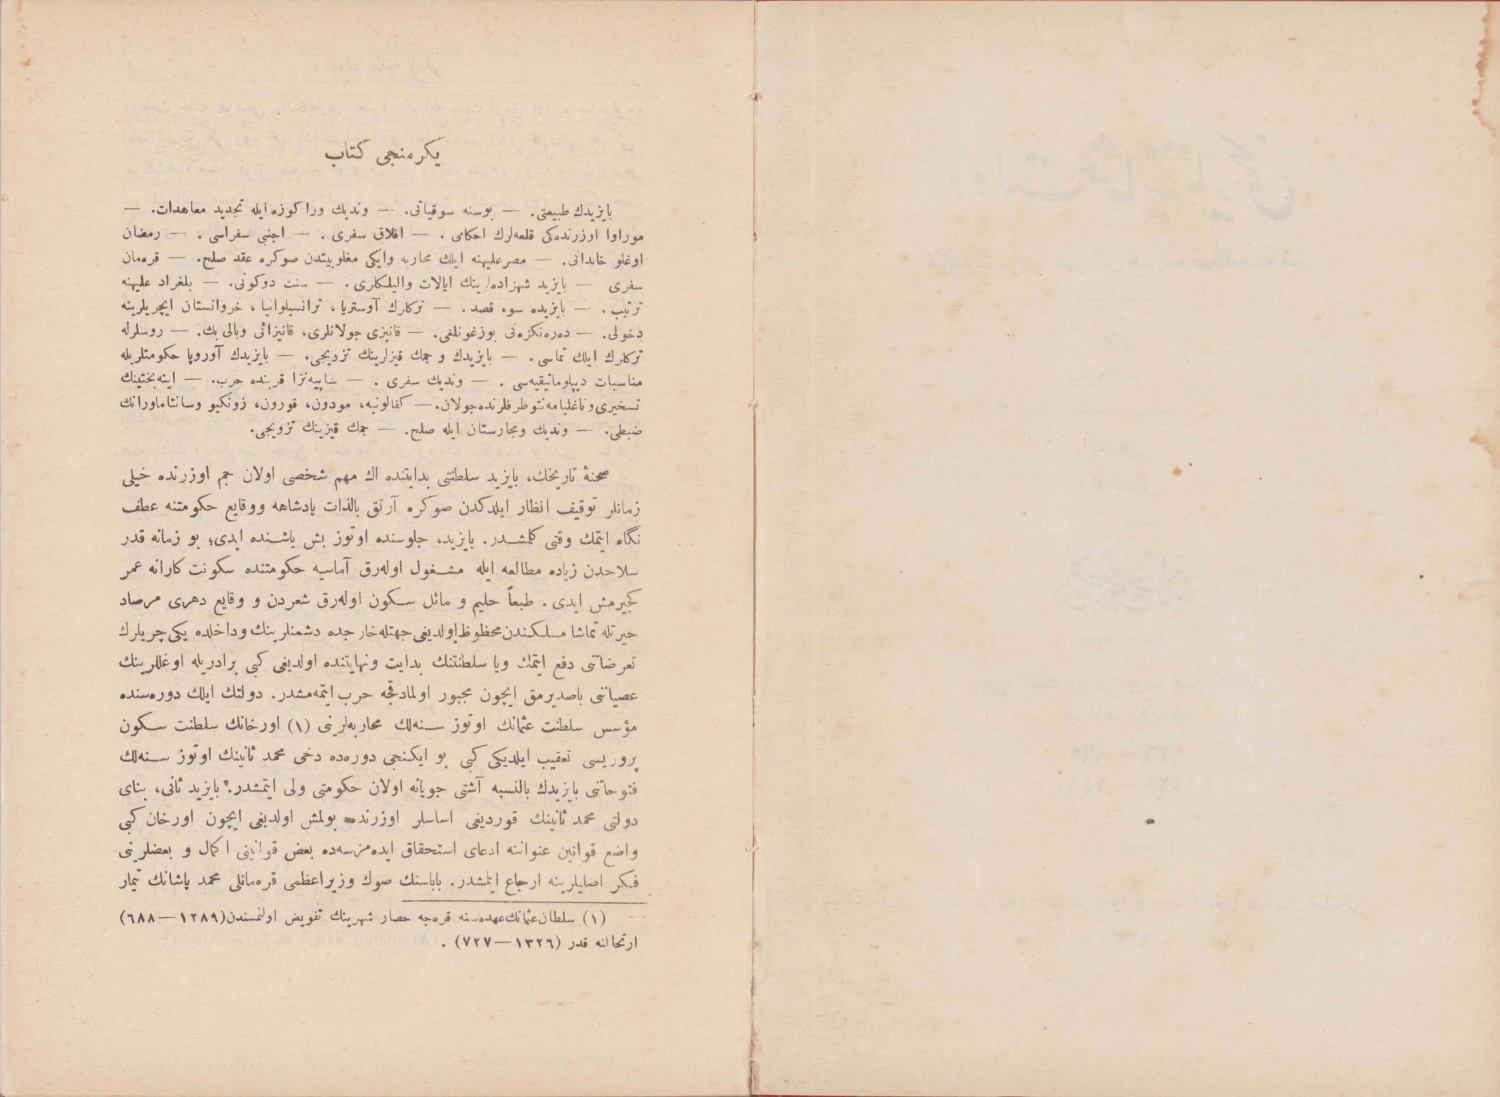 یکرمنجی کتاب
بایزیدك طبیعتی. — بوسنه سوقیاتی. — وندیك وراكوزه ایله تجدید معاهدات. —
موراوا اوزرنده‌كی قلعه‌لرك احكامی. — افلاق سفری. — اجنبی سفراسی. — رمضان
اوغلو خاندانی. — مصر علیهنه ایلك محاربه وایكی مغلوبیتدن صوكره عقد صلح. — قره‌مان
سفری — بایزید شهزاده‌لرینك ایالات والیلكلری. — سنت دوكونی. — بلغراد علیهنه
ترتیب. — بایزیده سوء قصد. — تركلرك آوستریا، ترانسیلوانیا، خروانستان ایچریلرینه
دخولی. — دره‌نكزه‌نی بوزغونلغی. — قانیزی جولانلری، قانیزائی وبالی بك. — روسلرله
تركلرك ایلك تماسی. — بایزیدك و جمك قیزلرینك تزویجی. — بایزیدك آوروپا حكومتلریله
مناسبات دیپلوماتیقیه‌سی. — وندیك سفری. — ساپیه‌نزا قربنده حرب. — اینه‌بختینك
تسخیری وتاغلیامه‌نتو طرفلرنده جولان. — كفالونیه، مودون، قورون، زونكیو وسانتاماورانك
ضبطی. — وندیك ومجارستان ایله صلح. — جمك قیزینك تزویجی.
صحنهٔ تاریخك، بایزید سلطنتی بدایتنده اك مهم شخصی اولان جم اوزرنده خیلی
زمانلر توقیف انظار ایلدكدن صوكره آرتق بالذات پادشاهه ووقایع حكومتنه عطف
نگاه ایتمك وقتی كلمشدر. بایزید، جلوسنده اوتوز بش یاشنده ایدی؛ بو زمانه قدر
سلاحدن زیاده مطالعه ایله مشغول اوله‌رق آماسیه حكومتنده سكونت كارانه عمر
كچیرمش ایدی. طبعاً حلیم و مائل سكون اوله‌رق شعردن و وقایع دهری مرصاد
حیرتله تماشا مسلكندن محظوظ اولدیغی جهتله خارجده دشمنلرینك وداخلده یكی چریلرك
تعرضاتنی دفع ایتمك ویا سلطنتنك بدایت ونهایتنده اولدیغی كبی برادریله اوغللرینك
عصیاننی باصدیرمق ایچون مجبور اولمادقجه حرب ایتمه‌مشدر. دولتك ایلك دوره‌سنده
مؤسس سلطنت عثمانك اوتوز سنه‌لك محاربه‌لرینی (۱) اورخانك سلطنت سكون
پروریسی تعقیب ایلدیكی كبی بو ایكنجی دوره‌ده دخی محمد ثانینك اوتوز سنه‌لك
فتوحاتنی بایزیدك بالنسبه آشتی جویانه اولان حكومتی ولی ایتمشدر. بایزید ثانی، بنای
دولتی محمد ثانینك قوردیغی اساسلر اوزرنده بولمش اولدیغی ایچون اورخان كبی
واضع قوانین عنواننه ادعای استحقاق ایده‌مزسه‌ده بعض قوانینی اكمال و بعضلرینی
فكر اصلیلرینه ارجاع ایلمشدر. باباسنك صوك وزیراعظمی قره‌مانلی محمد پاشانك تیمار
(۱) سلطان عثمانك عهده‌سنه قره‌جه حصار شهرینك تفویض اولنمسندن (۱۲۸۹—۶۸۸)
ارتحالنه قدر (۱۳۲۶—۷۲۷).